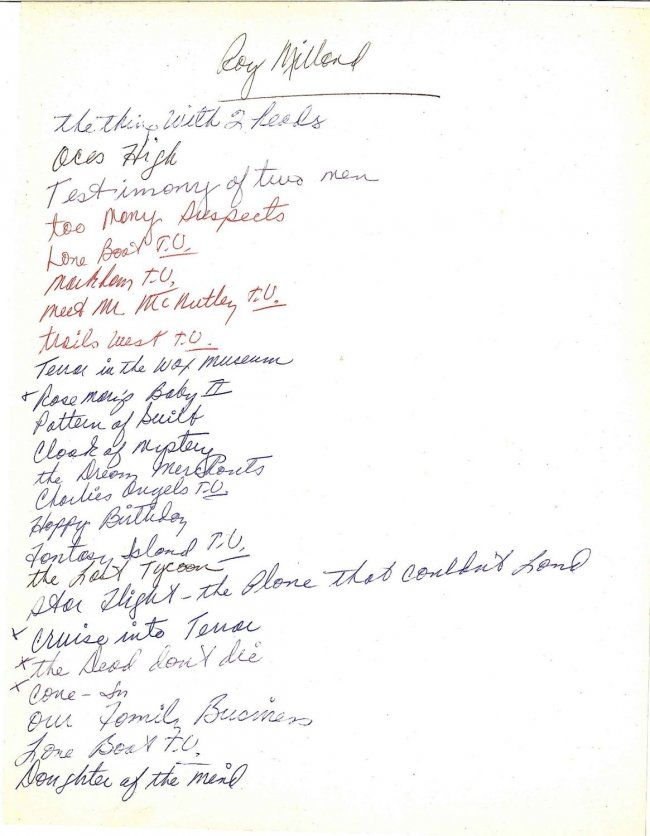 Ray Milland
the thing With 2 heads
Aces High
Testimony of two men
too Many Suspects
Love Boat T.V.
Markham T.V.
meet Mr. McNutley T.V.
trails West T.V.
Terror in the Wax Museum
+ Rosemary's Baby II
Pattern of Guilt
Cloak of Mystery
the Dream Merchants
Charlies Angels T.V.
Happy Birthday
Fantasy Island T.V.
the Last Tycoon
Star Flight - the Plane that couldn't Land
x Cruise into Terror
x the Dead don't die
x Cave-In
Our Family Business
Love Boat T.V.
Daughter of the Mind